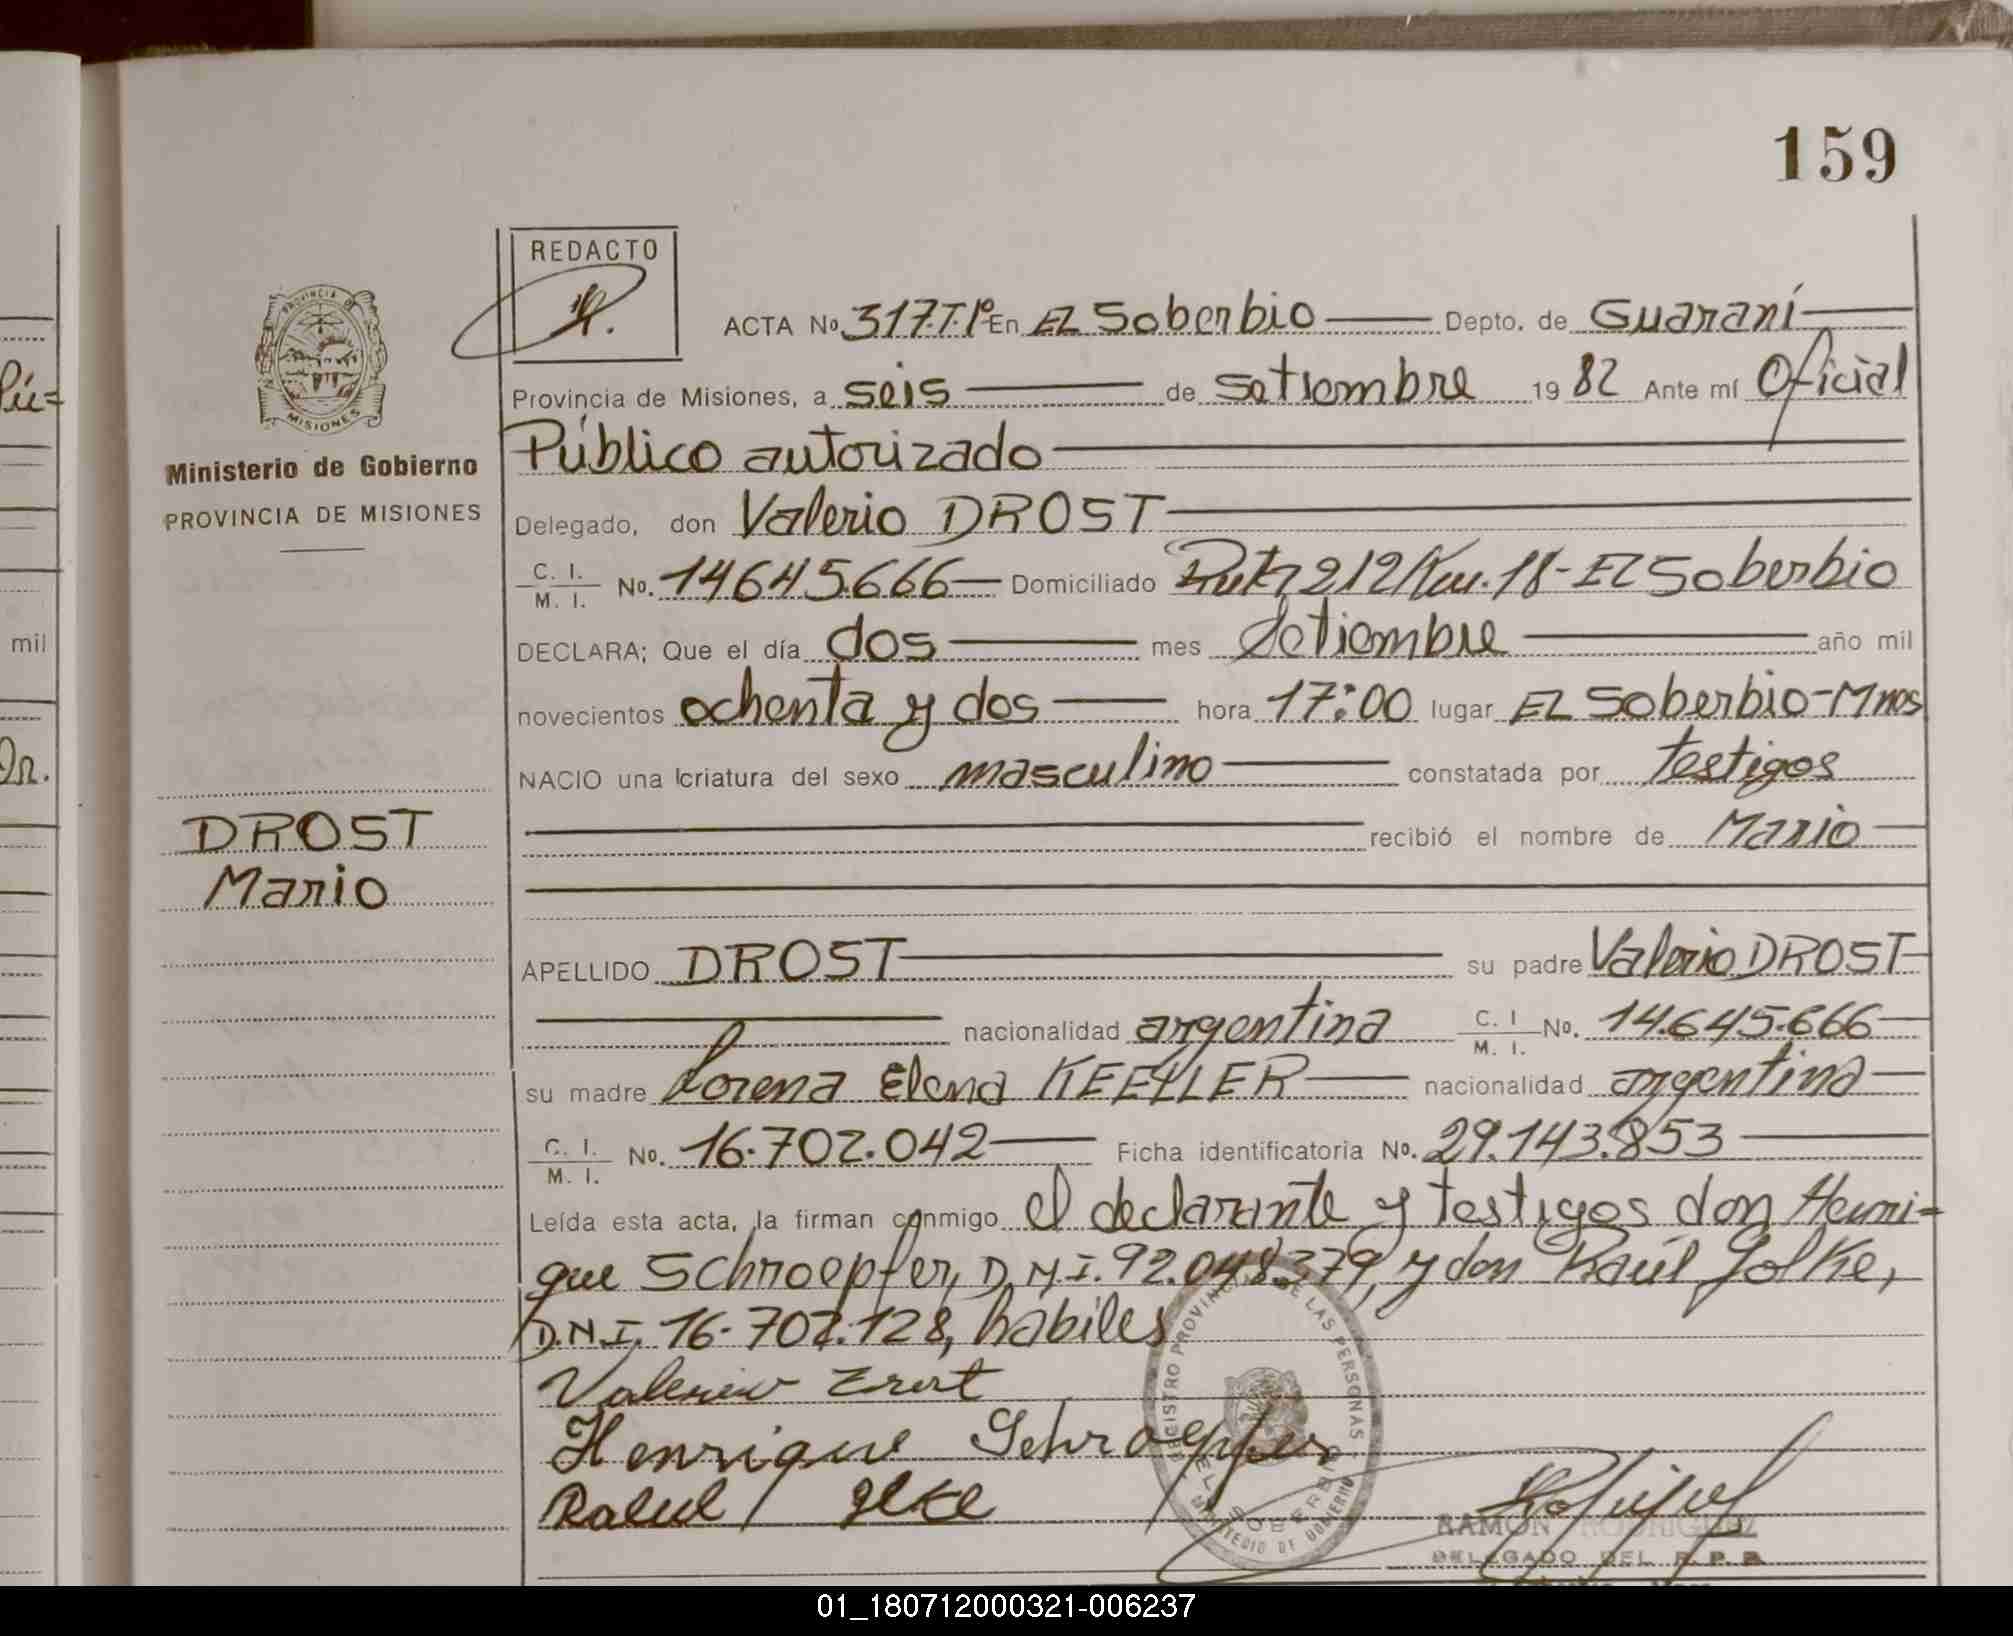 159
REDACTO
ACTA No. 317.T.1º En El Soberbio Depto. de Guaraní
Provincia de Misiones, a seis de Setiembre 1982 Ante mí Oficial
Público autorizado
Ministerio de Gobierno
PROVINCIA DE MISIONES
Delegado, don Valerio DROST
C. I. M. I. No. 14.645.666 Domiciliado Ruta 212 Km. 18 - El Soberbio
DECLARA; Que el día dos mes Setiembre año mil
novecientos ochenta y dos hora 17:00 lugar El Soberbio-Mnes
NACIO una criatura del sexo masculino constatada por testigos
recibió el nombre de Mario
DROST
Mario
APELLIDO DROST su padre Valerio DROST
nacionalidad argentina C. I M. I. No. 14.645.666
su madre Lorena Elena nacionalidad argentina
C. I. M. I. No. 16.702.042 Ficha identificatoria No. 29.143.853
Leída esta acta, la firman conmigo el declarante y testigos don Henri-
que Schroepfer, D.N.I. 92.048.379, y don Raúl Jolke,
D.N.I. 16.702.128, habiles
Henrique Schroepfer
REGISTRO PROVINCIAL DE LAS PERSONAS
EL SOBERBIO
MINISTERIO DE GOBIERNO
RAMON RODRIGUEZ
DELEGADO DEL R. P. P.
mil
PROVINCIA DE
MISIONES
01_180712000321-006237